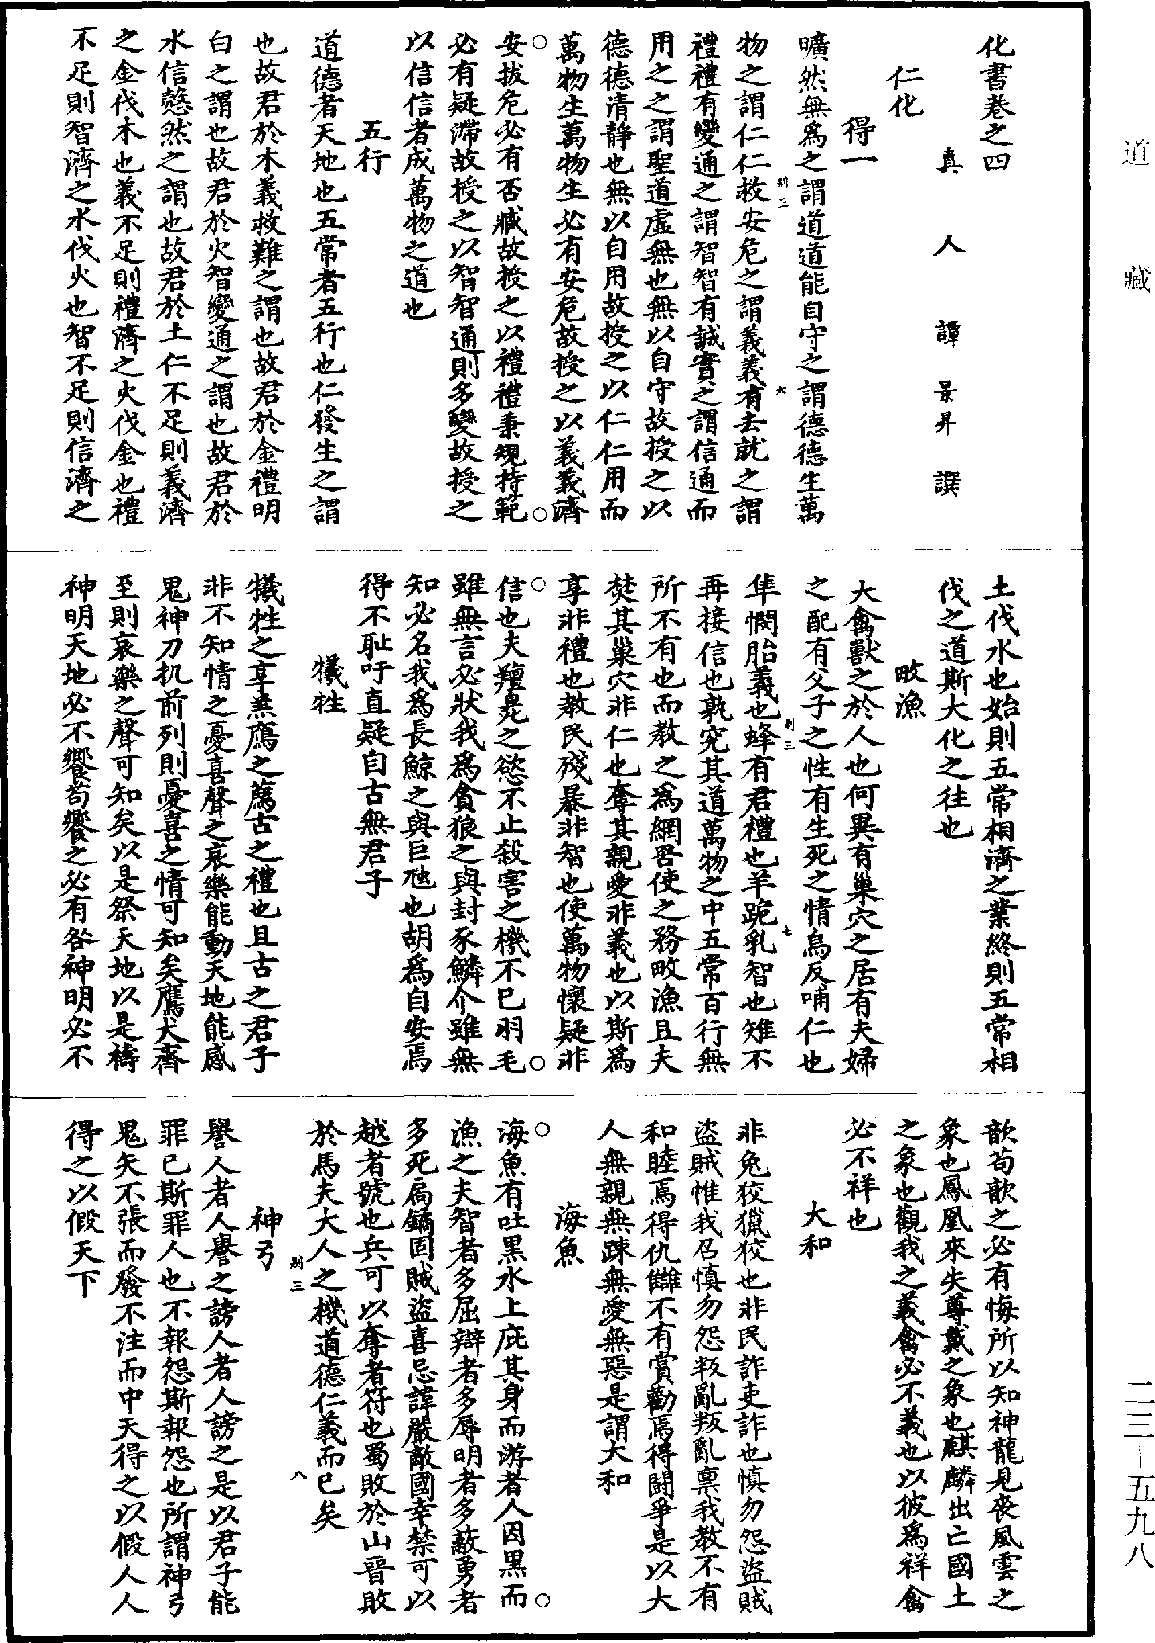 道藏
二三—五九八
化書卷之四
真人譚景昇譔
仁化
得一
曠然無爲之謂道道能自守之謂德德生萬
物之謂仁仁救安危之謂義義有去就之謂
禮禮有變通之謂智智有誠實之謂信通而
用之之謂聖道虛無也無以自守故授之以
德德清靜也無以自用故授之以仁仁用而
萬物生萬物生必有安危故授之以義義濟
安拔危必有否臧故授之以禮禮秉規持範
必有疑滯故授之以智智通則多變故授之
以信信者成萬物之道也
五行
道德者天地也五常者五行也仁發生之謂
也故君於木義救難之謂也故君於金禮明
白之謂也故君於火智變通之謂也故君於
水信慤然之謂也故君於土仁不足則義濟
之金伐木也義不足則禮濟之火伐金也禮
不足則智濟之水伐火也智不足則信濟之
土伐水也始則五常相濟之業終則五常相
伐之道斯大化之往也
畋漁
夫禽獸之於人也何異有巢穴之居有夫婦
之配有父子之性有生死之情烏反哺仁也
隼憫胎義也蜂有君禮也羊跪乳智也雉不
再接信也孰究其道萬物之中五常百行無
所不有也而教之爲網罟使之務畋漁且夫
焚其巢穴非仁也奪其親愛非義也以斯爲
享非禮也教民殘暴非智也使萬物懷疑非
信也夫羶臭之慾不止殺害之機不已羽毛
雖無言必狀我爲貪狼之與封豕鱗介雖無
知必名我爲長鯨之與巨虺也胡爲自安焉
得不恥吁直疑自古無君子
犧牲
犧牲之享羔鴈之薦古之禮也且古之君子
非不知情之憂喜聲之哀樂能動天地能感
鬼神刀机前列則憂喜之情可知矣鷹犬齊
至則哀樂之聲可知矣以是祭天地以是禱
神明天地必不饗苟饗之必有咎神明必不
歆苟歆之必有悔所以知神龍見喪風雲之
象也鳳凰來失尊戴之象也麒麟出亡國土
之象也觀我之義禽必不義也以彼爲祥禽
必不祥也
大和
非兔狡獵狡也非民詐吏詐也慎勿怨盜賊
盜賊惟我召慎勿怨叛亂叛亂稟我教不有
和睦焉得仇讎不有賞勸焉得鬪爭是以大
人無親無踈無愛無惡是謂大和
海魚
海魚有吐黑水上庇其身而游者人因黑而
漁之夫智者多屈辯者多辱明者多蔽勇者
多死扃鐍固賊盜喜忌諱嚴敵國幸禁可以
越者號也兵可以奪者符也蜀敗於山晉敗
於馬夫大人之機道德仁義而已矣
神弓
譽人者人譽之謗人者人謗之是以君子能
罪己斯罪人也不報怨斯報怨也所謂神弓
鬼矢不張而發不注而中天得之以假人人
得之以假天下